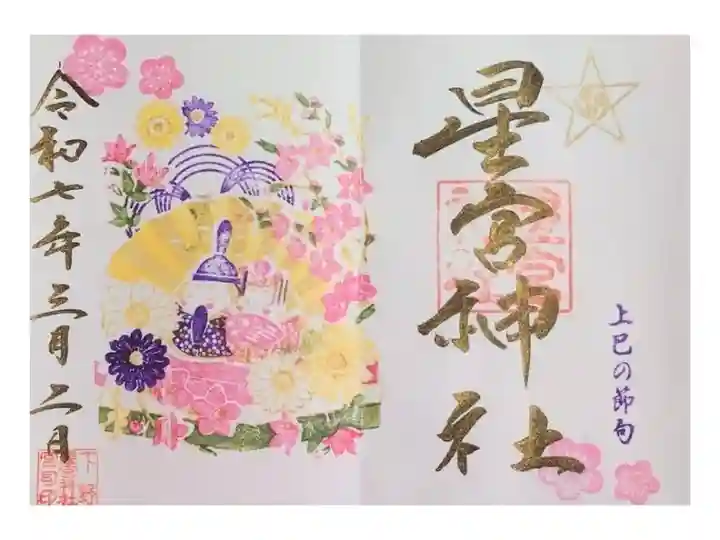 星宮神社
上巳の節句
令和七年三月二日
下野
星宮神社
宮司印